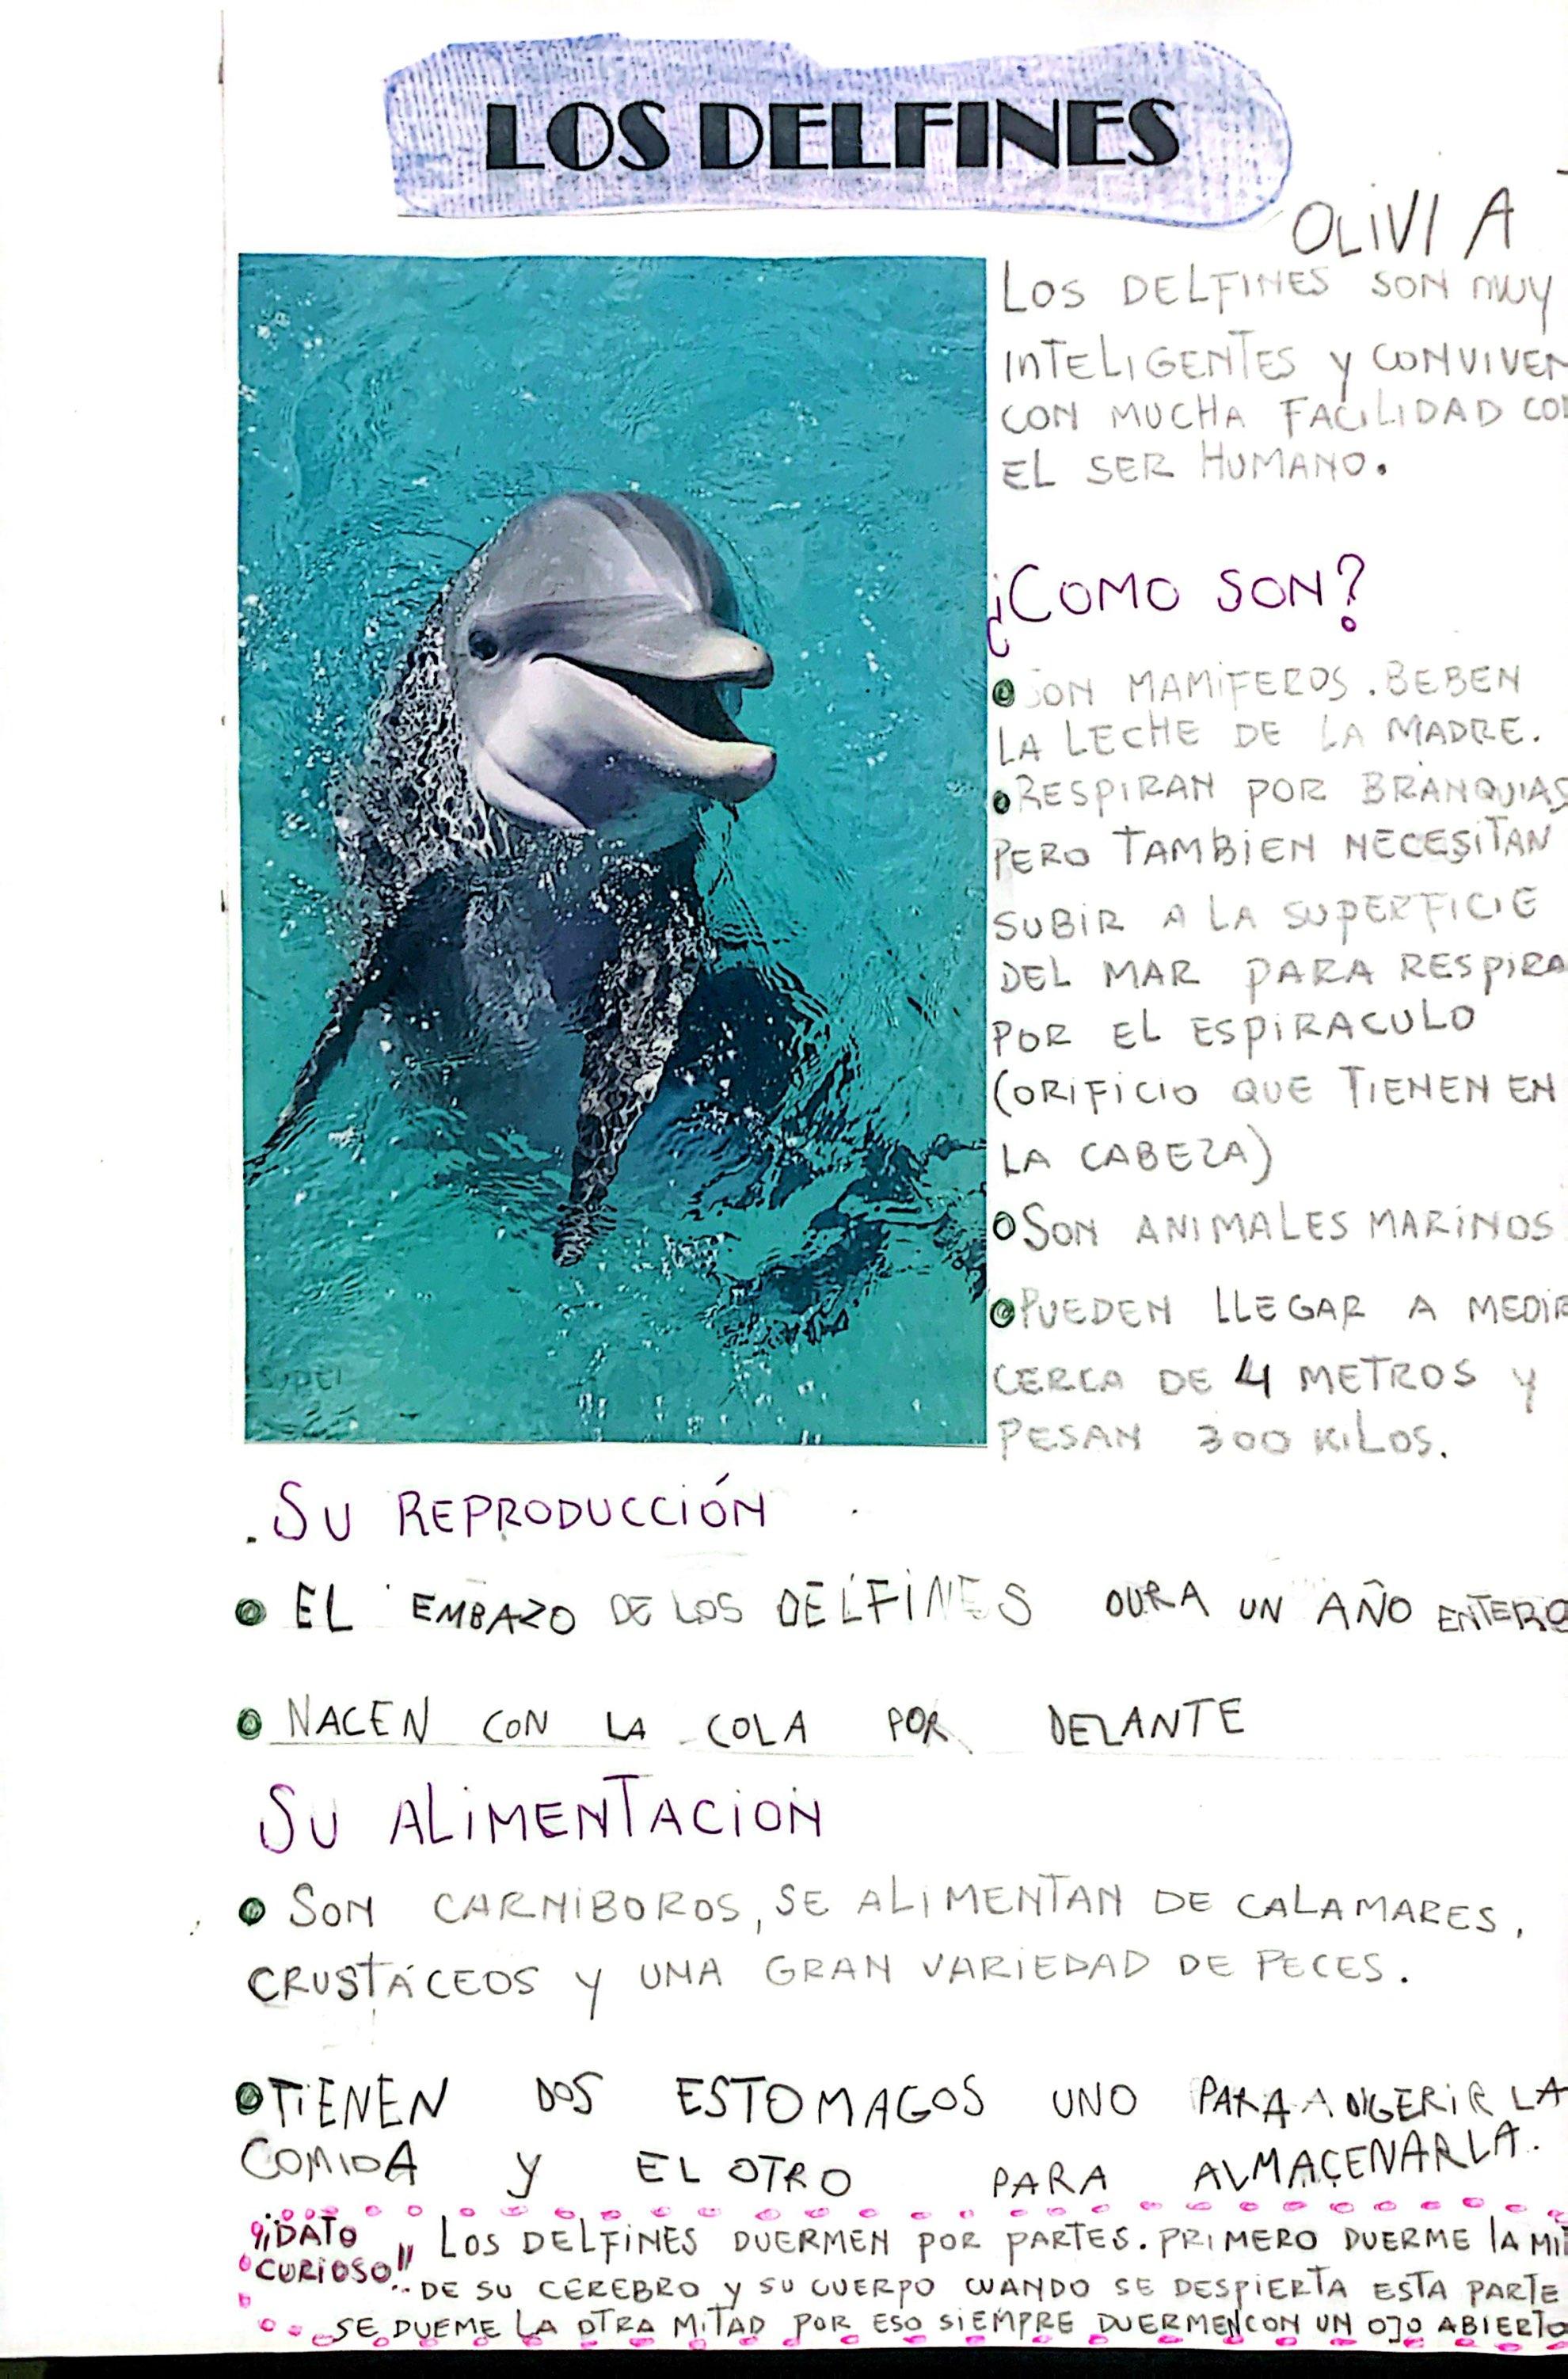 LOS DELFINES
OLIVIA
LOS DELFINES SON MUY
INTELIGENTES Y CONVIVEN
CON MUCHA FACILIDAD CO
EL SER HUMANO.
¿COMO SON?
SON MAMIFEROS. BEBEN
LA LECHE DE LA MADRE.
RESPIRAN POR BRANQUIAS
PERO TAMBIEN NECESITAN
SUBIR A LA SUPERFICIE
DEL MAR PARA RESPIRA
POR EL ESPIRACULO
(ORIFICIO QUE TIENEN EN
LA CABEZA)
SON ANIMALES MARINOS
PUEDEN LLEGAR A MEDIR
CERCA DE 4 METROS Y
PESAN 300 KILOS.
SU REPRODUCCIÓN
EL EMBAZO DE LOS DELFINES DURA UN AÑO ENTERO
NACEN CON LA COLA POR DELANTE
SU ALIMENTACION
SON CARNIBOROS, SE ALIMENTAN DE CALAMARES,
CRUSTÁCEOS Y UNA GRAN VARIEDAD DE PECES.
TIENEN DOS ESTOMAGOS UNO PARA A DIGERIR LA
COMIDA Y EL OTRO PARA ALMACENARLA.
¡¡DATO CURIOSO!! LOS DELFINES DUERMEN POR PARTES. PRIMERO DUERME LA MIT
DE SU CEREBRO Y SU CUERPO CUANDO SE DESPIERTA ESTA PARTE
SE DUEME LA OTRA MITAD POR ESO SIEMPRE DUERMEN CON UN OJO ABIERTO